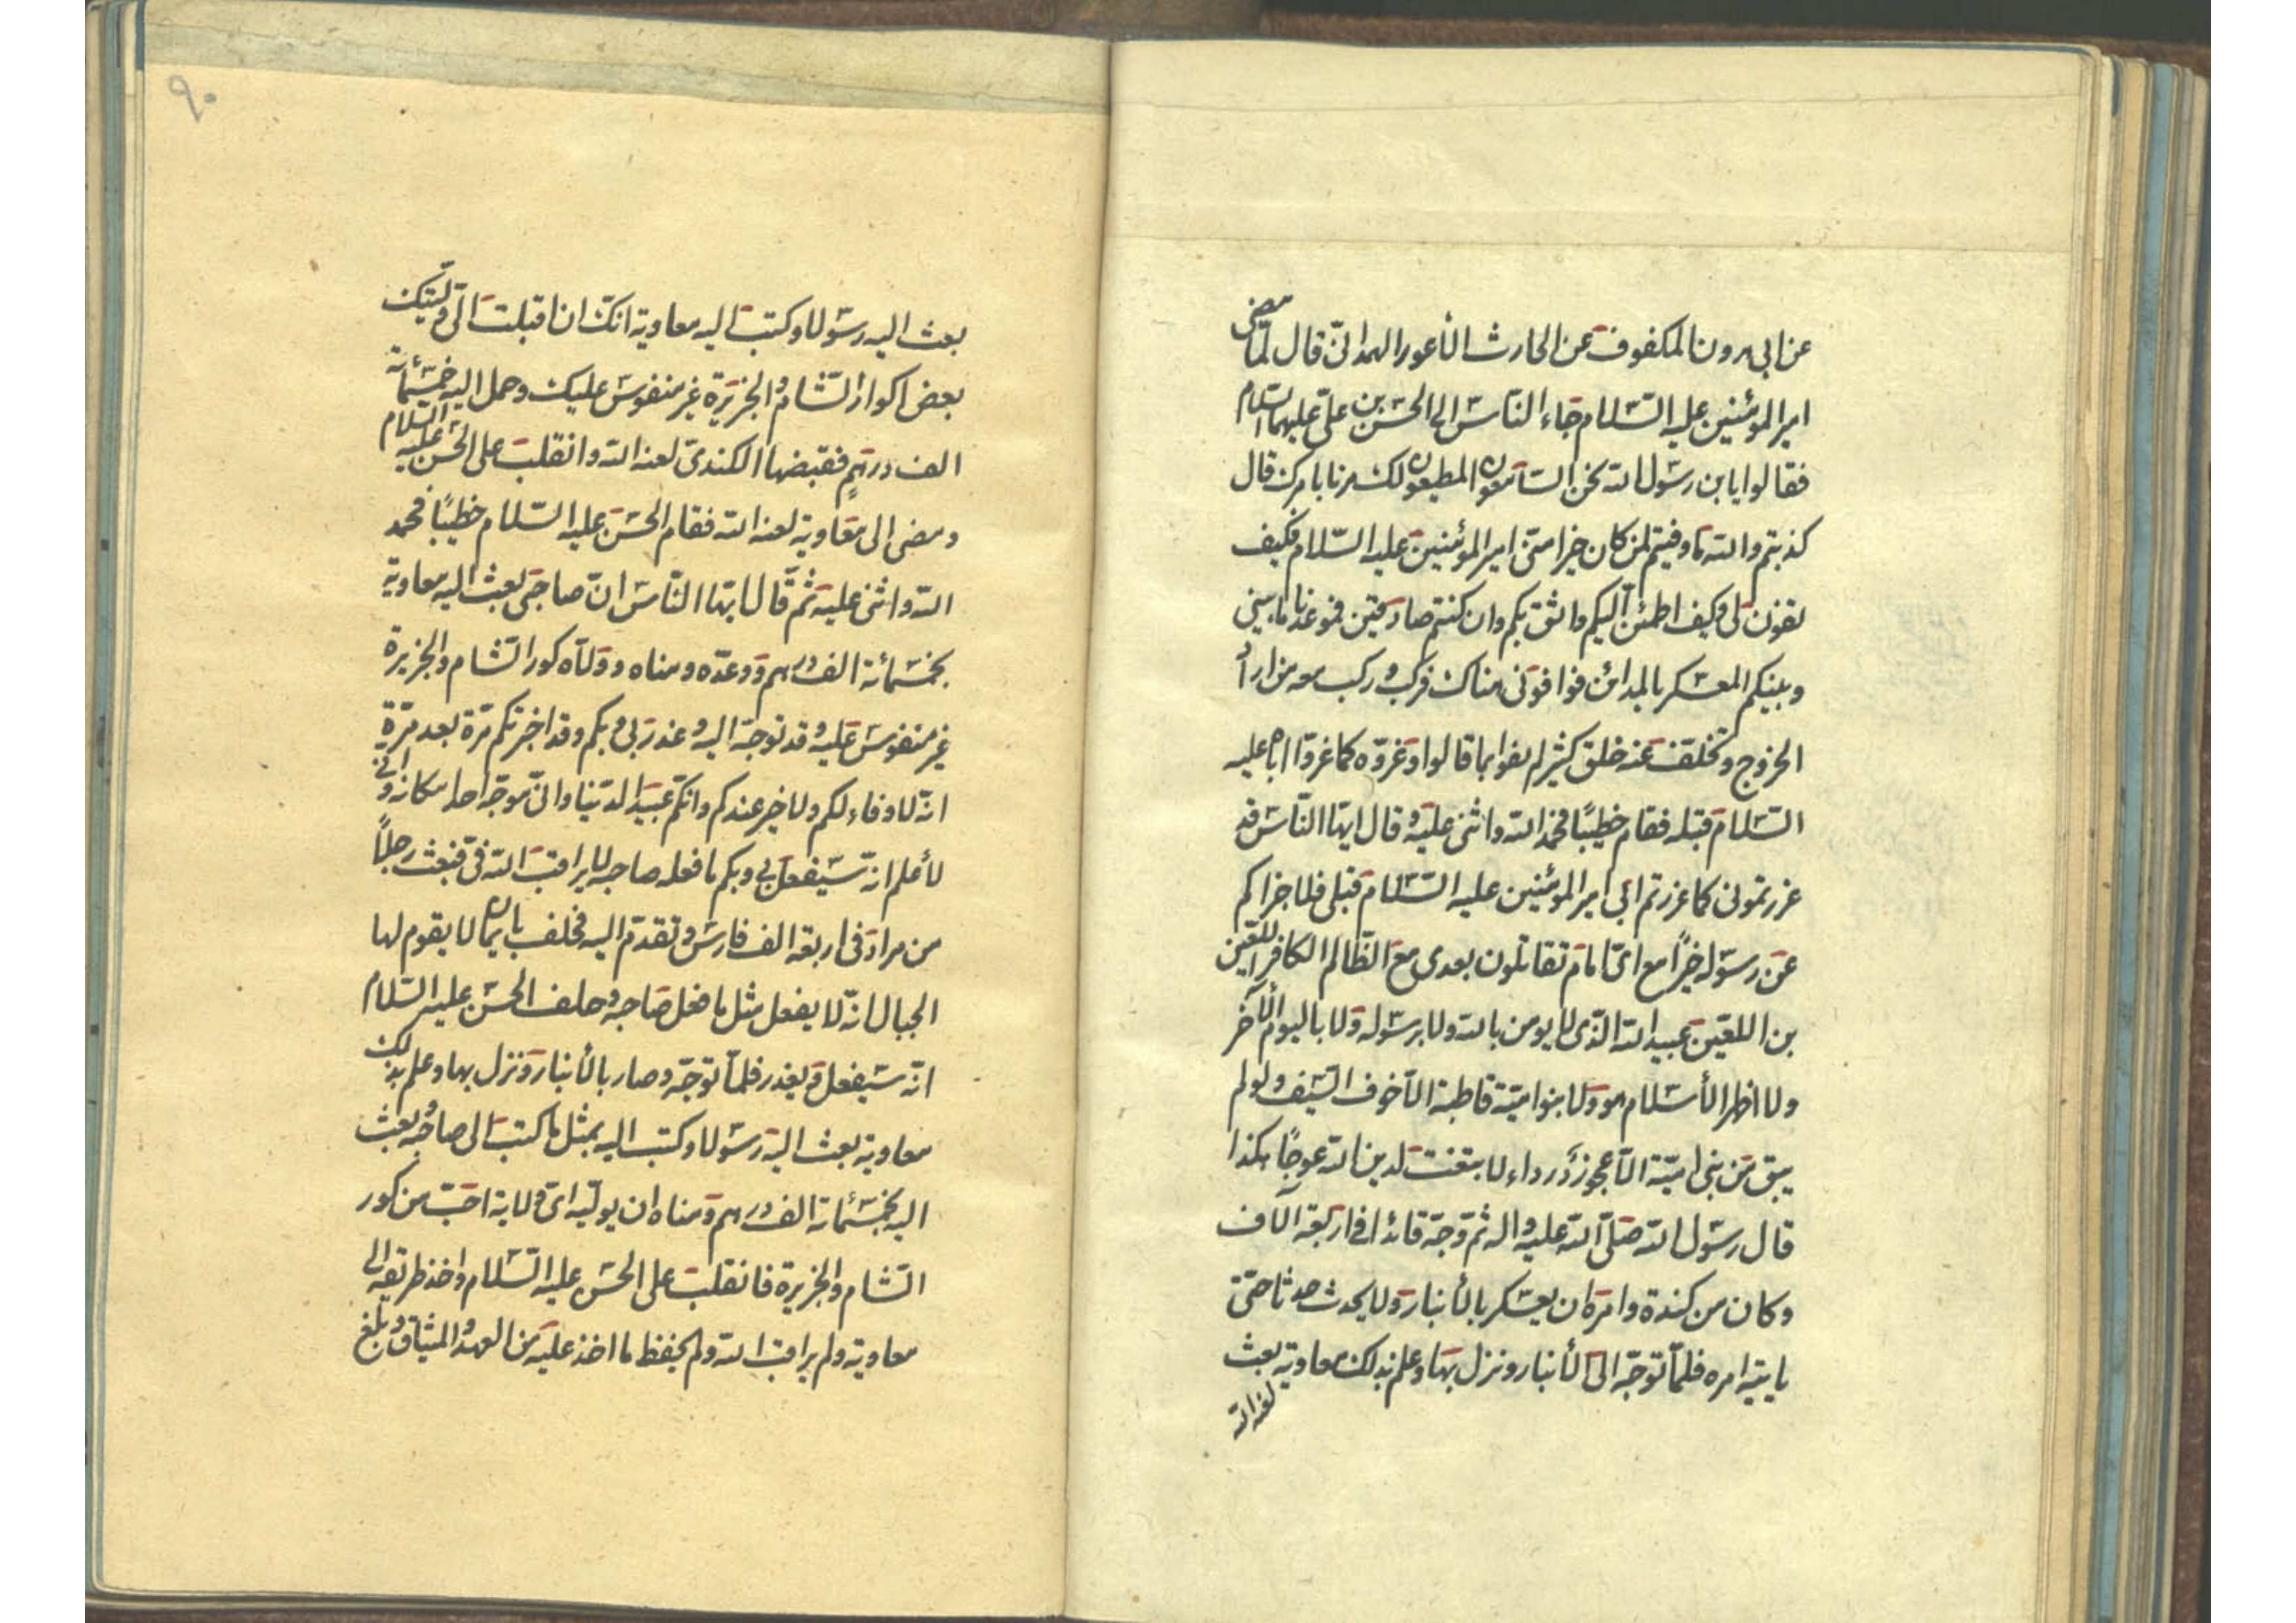 عن ابى هرون المكفوف عن الحارث الأعور الهمدانىّ قال لمّا مضى
امير المؤمنين عليه السّلام جاء النّاس الى الحسن بن علىّ عليهما السّلام
فقالوا يا بن رسول الله نحن السّامعون المطيعون لك مرنا بامرك قال
كذبتم والله ما وفيتم لمن كان خيرا منّى امير المؤمنين عليه السّلام فكيف
تفون لى وكيف اطمئن اليكم واثق بكم وان كنتم صادقين فموعدنا ما بينى
وبينكم المعسكر بالمدائن فوافونى هناك فركب وركب معه من اراد
الخروج وتخلّف عنه خلق كثير لم يفوا بما قالوا وغرّوه كما غرّوا اباه عليه
السّلام قبله فقام خطيبًا فحمد الله واثنى عليه وقال ايّها النّاس قد
غررتمونى كما غررتم ابى امير المؤمنين عليه السّلام قبلى فلا جزاكم
عن رسوله خيرًا مع اىّ امام تقاتلون بعدى مع الظّالم الكافر اللعين
بن اللعين عبيد الله الّذى لا يومن بالله ولا برسوله ولا باليوم الآخر
ولا اظهر الأسلام هو ولا بنوا اميّة قاطبة الّا خوف السّيف ولو لم
يبق من بنى اميّة الّا عجوز درداء لابتغت لدين الله عوجًا هكذا
قال رسول الله صلّى الله عليه واله ثم وجّه قائدا فى اربعة آلاف
وكان من كندة وامره ان يعسكر بالأنبار ولا يحدث حدثا حتّى
ياتيه امره فلمّا توجّه الى الأنبار ونزل بها وعلم بذلك معاوية بعث
لعنه الله
٩٠
بعث اليه رسولا وكتب اليه معاوية انّك ان اقبلت الىّ ولّيتك
بعض اكوار الشّام والجزيرة غير منفوس عليك وحمل اليه خمسمائة
الف درهم فقبضها الكندىّ لعنه الله وانقلب على الحسن عليه السّلام
ومضى الى معاوية لعنه الله فقام الحسن عليه السّلام خطيبًا فحمد
الله واثنى عليه ثمّ قال ايّها النّاس انّ صاحبى بعث اليه معاوية
بخمسمائة الف درهم ووعده ومناه وولّاه كور الشّام والجزيرة
غير منفوس عليه وقد توجّه اليه وغدر بى وبكم وقد اخبرتكم مرّة بعد مرّة
انّه لا وفاء لكم ولا خير عندكم وانكم عبيد الدّنيا وانّى موجّه احدا مكانه وانى
لأعلم انّه سيفعل بى وبكم ما فعله صاحبه لا يراقب الله فىّ فبعث رجلًا
من مراد فى اربعة الف فارس وتقدّم اليه فحلف بايمان لا يقوم لها
الجبال انّه لا يفعل مثل ما فعل صاحبه وحلف الحسن عليه السّلام
انّه سيفعل ويغدر فلمّا توجّه وصار بالأنبار ونزل بها وعلم بذلك
معاوية بعث اليه رسولا وكتب اليه بمثل ما كتب الى صاحبه وبعث
اليه بخمسمائة الف درهم ومناه ان يولّيه اىّ ولاية احبّ من كور
الشّام والجزيرة فانقلب على الحسن عليه السّلام واخذ طريقه الى
معاوية ولم يراقب الله ولم يحفظ ما اخذ عليه من العهد والميثاق وبلغ